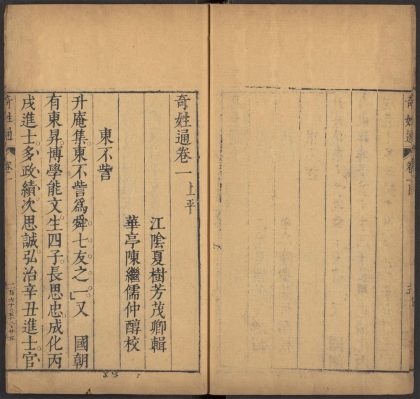 奇姓通卷一上平
江陰夏樹芳茂卿輯
華亭陳繼儒仲醇校
東不訾
升庵集東不訾爲舜七友之一又 國朝
有東昇博學能文生四子長思忠成化丙
戌進士多政績次思誠弘治辛丑進士官
奇姓通
卷一
奇姓通